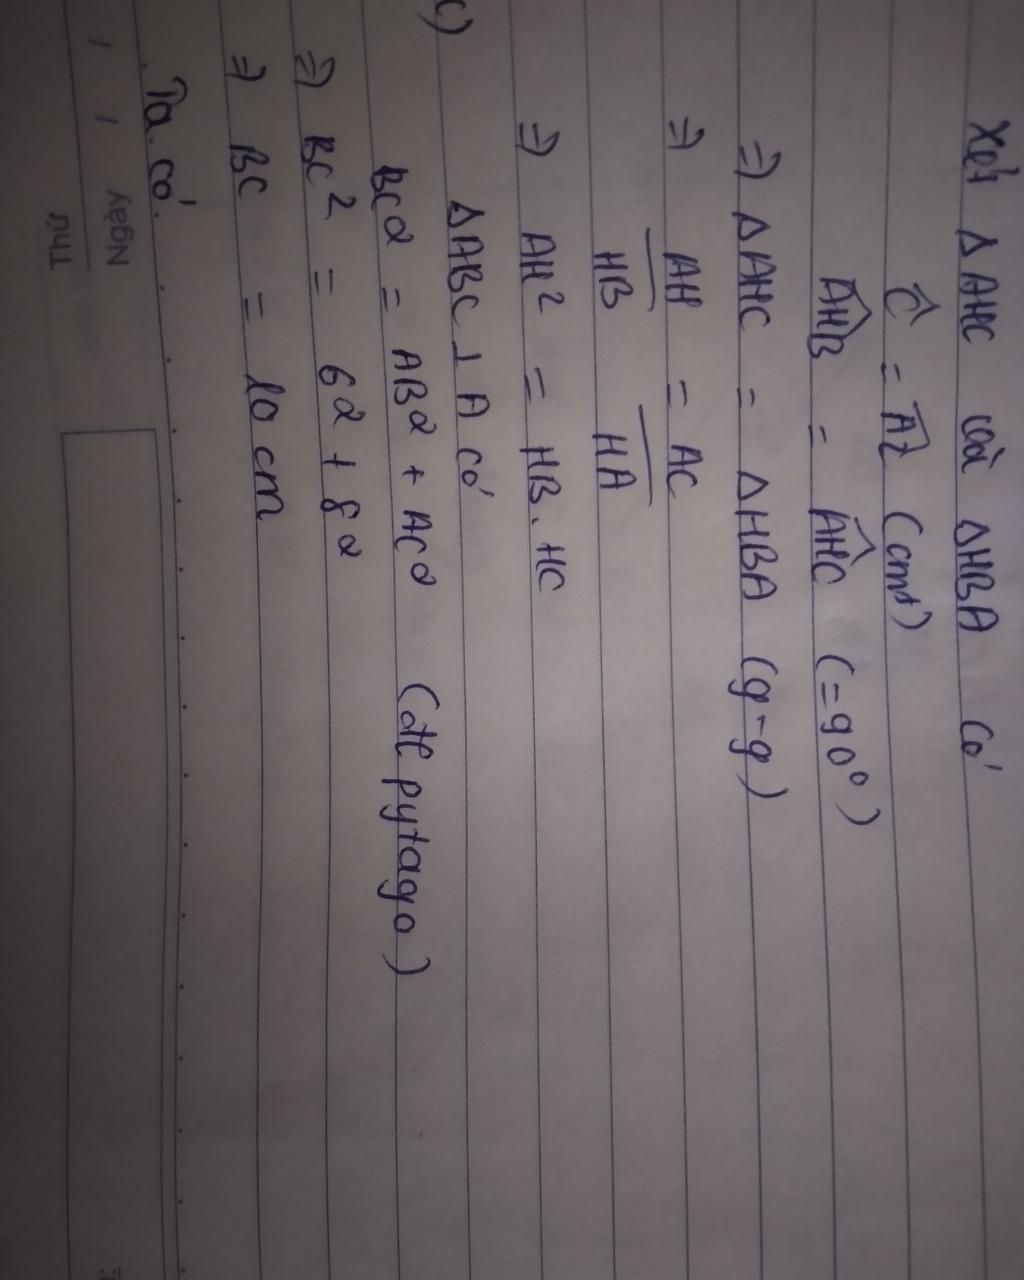 Xét Δ AHC và ΔHBA Có
Ĉ = Â1 (cmt)
AHB = AHC (=90°)
=) Δ AHC = ΔHBA (g-g)
=) AH = AC
HB HA
=) AH² = HB.HC
c) ΔABC ⊥ A có
BC2 = AB2 + AC2 (đl pytago)
=) BC² = 62 + 82
=) BC = 10 cm
Ta có
Ngày / /
Thứ